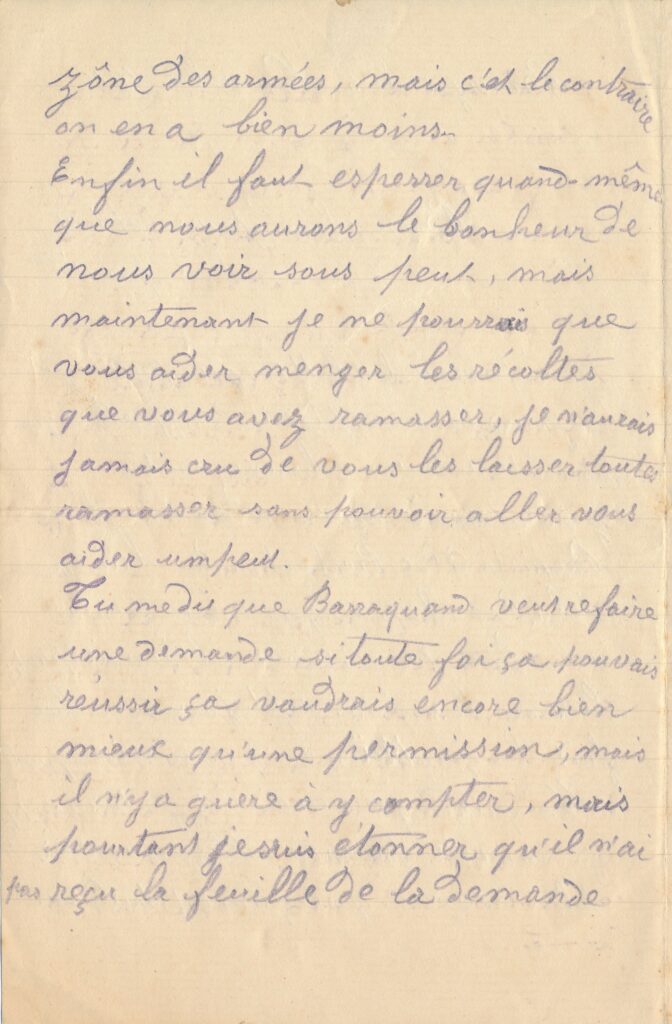 zône des armées, mais c'et le contraire
on en a bien moins.
Enfin il faut esperrer quand-même
que nous aurons le bonheur de
nous voir sous peut, mais
maintenant je ne pourrais que
vous aider menger les récoltes
que vous avez ramasser, je n'aurais
jamais cru de vous les laisser toutes
ramasser sans pouvoir aller vous
aider umpeut.
Tu me dis que Barraquand veut refaire
une demande si toute foi ça pouvais
réussir ça vaudrais encore bien
mieux qu'une permission, mais
il n'y a guère à y compter, mais
pourtant je suis étonner qu'il n'ai
pas reçu la feuille de la demande